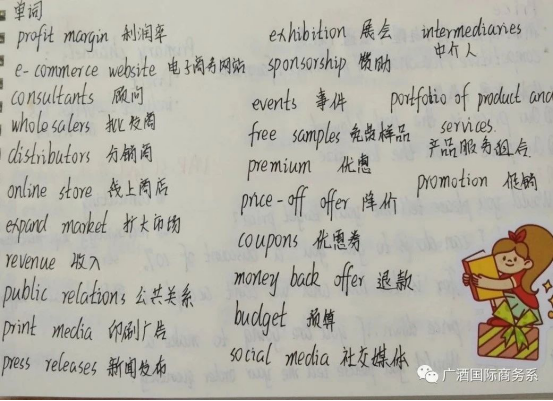 单词
profit margin 利润率
e-commerce website 电子商务网站
consultants 顾问
wholesalers 批发商
distributors 分销商
online store 线上商店
expand market 扩大市场
revenue 收入
public relations 公共关系
print media 印刷广告
press releases 新闻发布
exhibition 展会
sponsorship 赞助
events 事件
free samples 免费样品
premium 优惠
price-off offer 降价
coupons 优惠券
money back offer 退款
budget 预算
social media 社交媒体
intermediaries
中介人
portfolio of product and
services.
产品服务组合
promotion 促销
广酒国际商务系